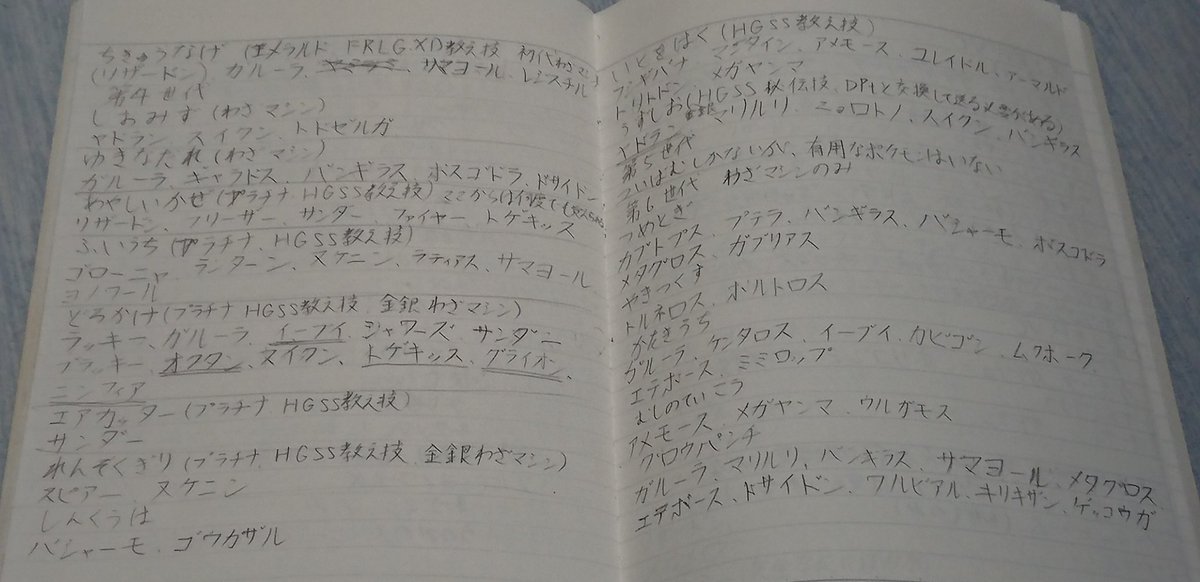 ちきゅうなげ (エメラルド FRLG XD教え技 初代わざマシン)
(リザードン)、ガルーラ、サマヨール、レジスチル
第4世代
しおみず (わざマシン)
ヤドラン、スイクン、トドゼルガ
ゆきなだれ (わざマシン)
ガルーラ、ギャラドス、バンギラス、ボスゴドラ、ドサイドン
あやしいかぜ (プラチナ HGSS教え技) ここからは何度でも
リザードン、フリーザー、サンダー、ファイヤー、トゲキッス
ふいうち (プラチナ、HGSS教え技)
ゴローニャ、ランターン、ヌケニン、ラティアス、サマヨール
ヨノワール
どろかけ (プラチナ HGSS教え技、金銀わざマシン)
ラッキー、ガルーラ、イーブイ、シャワーズ、サンダー
ブラッキー、オクタン、スイクン、トゲキッス、グライオン、
ニンフィア
エアカッター (プラチナ HGSS教え技)
サンダー
れんぞくぎり (プラチナ、HGSS教え技、金銀わざマシン)
スピアー、ヌケニン
しんくうは
バシャーモ、ゴウカザル
いとをはく (HGSS教え技)
フシギバナ、マンタイン、アメモース、ユレイドル、アーマルド
トリトドン、メガヤンマ
うずしお (HGSS秘伝技、DPtと交換して送る必要がある)
ヤドラン、マリルリ、ニョロトノ、スイクン、バンギラス
第5世代
ついばむしかないが、有用なポケモンはいない
第6世代 わざマシンのみ
つめとぎ
カブトプス、プテラ、バンギラス、バシャーモ、ボスゴドラ
メタグロス、ガブリアス
やきつくす
トルネロス、ボルトロス
かたきうち
ガルーラ、ケンタロス、イーブイ、カビゴン、ムクホーク
エテボース、ミミロップ
むしのていこう
アメモース、メガヤンマ、ウルガモス
グロウパンチ
ガルーラ、マリルリ、バンギラス、サマヨール、メタグロス
エテボース、ドサイドン、ワルビアル、キリキザン、ゲッコウガ